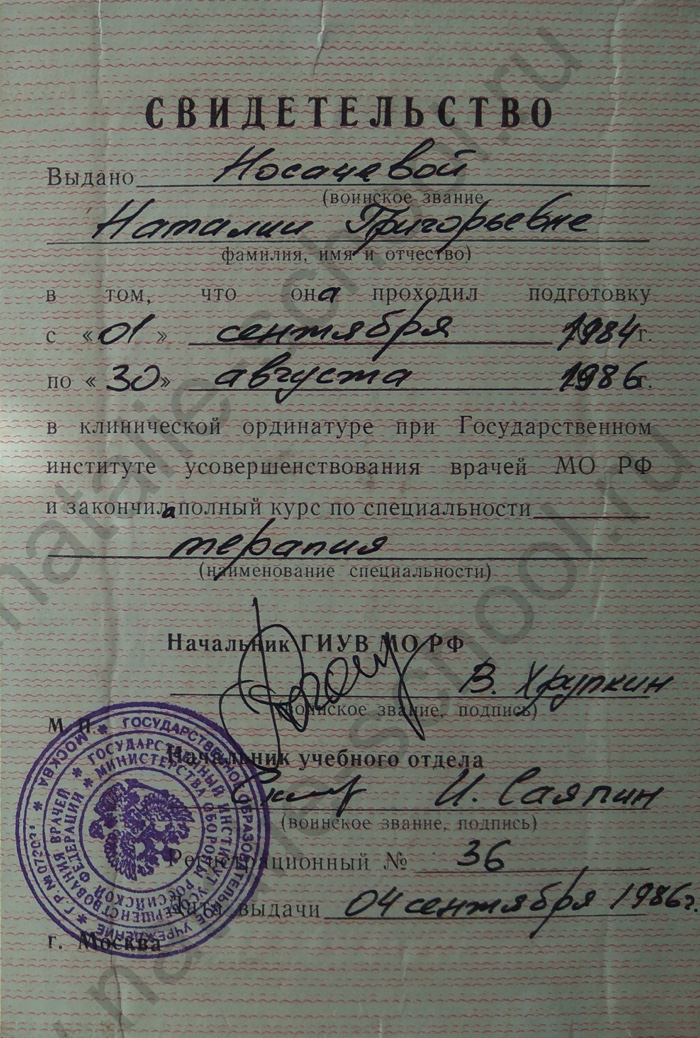 СВИДЕТЕЛЬСТВО
Выдано Носачевой
(воинское звание
Наталии Григорьевне
фамилия, имя и отчество)
в том, что она проходил подготовку
с «01» сентября 1984г.
по «30» августа 1986г.
в клинической ординатуре при Государственном
институте усовершенствования врачей МО РФ
и закончила полный курс по специальности
терапия
(наименование специальности)
Начальник ГИУВ МО РФ
В. Хрупкин
(воинское звание, подпись)
М. П.
Начальник учебного отдела
И. Саяпин
(воинское звание, подпись)
Регистрационный № 36
Дата выдачи 04 сентября 1986г.
г. Москва
ГОСУДАРСТВЕННОЕ ОБРАЗОВАТЕЛЬНОЕ УЧРЕЖДЕНИЕ * МОСКВА *
ГОСУДАРСТВЕННЫЙ ИНСТИТУТ УСОВЕРШЕНСТВОВАНИЯ ВРАЧЕЙ
МИНИСТЕРСТВА ОБОРОНЫ РОССИЙСКОЙ ФЕДЕРАЦИИ
natalis-school.ru
natalis-school.ru